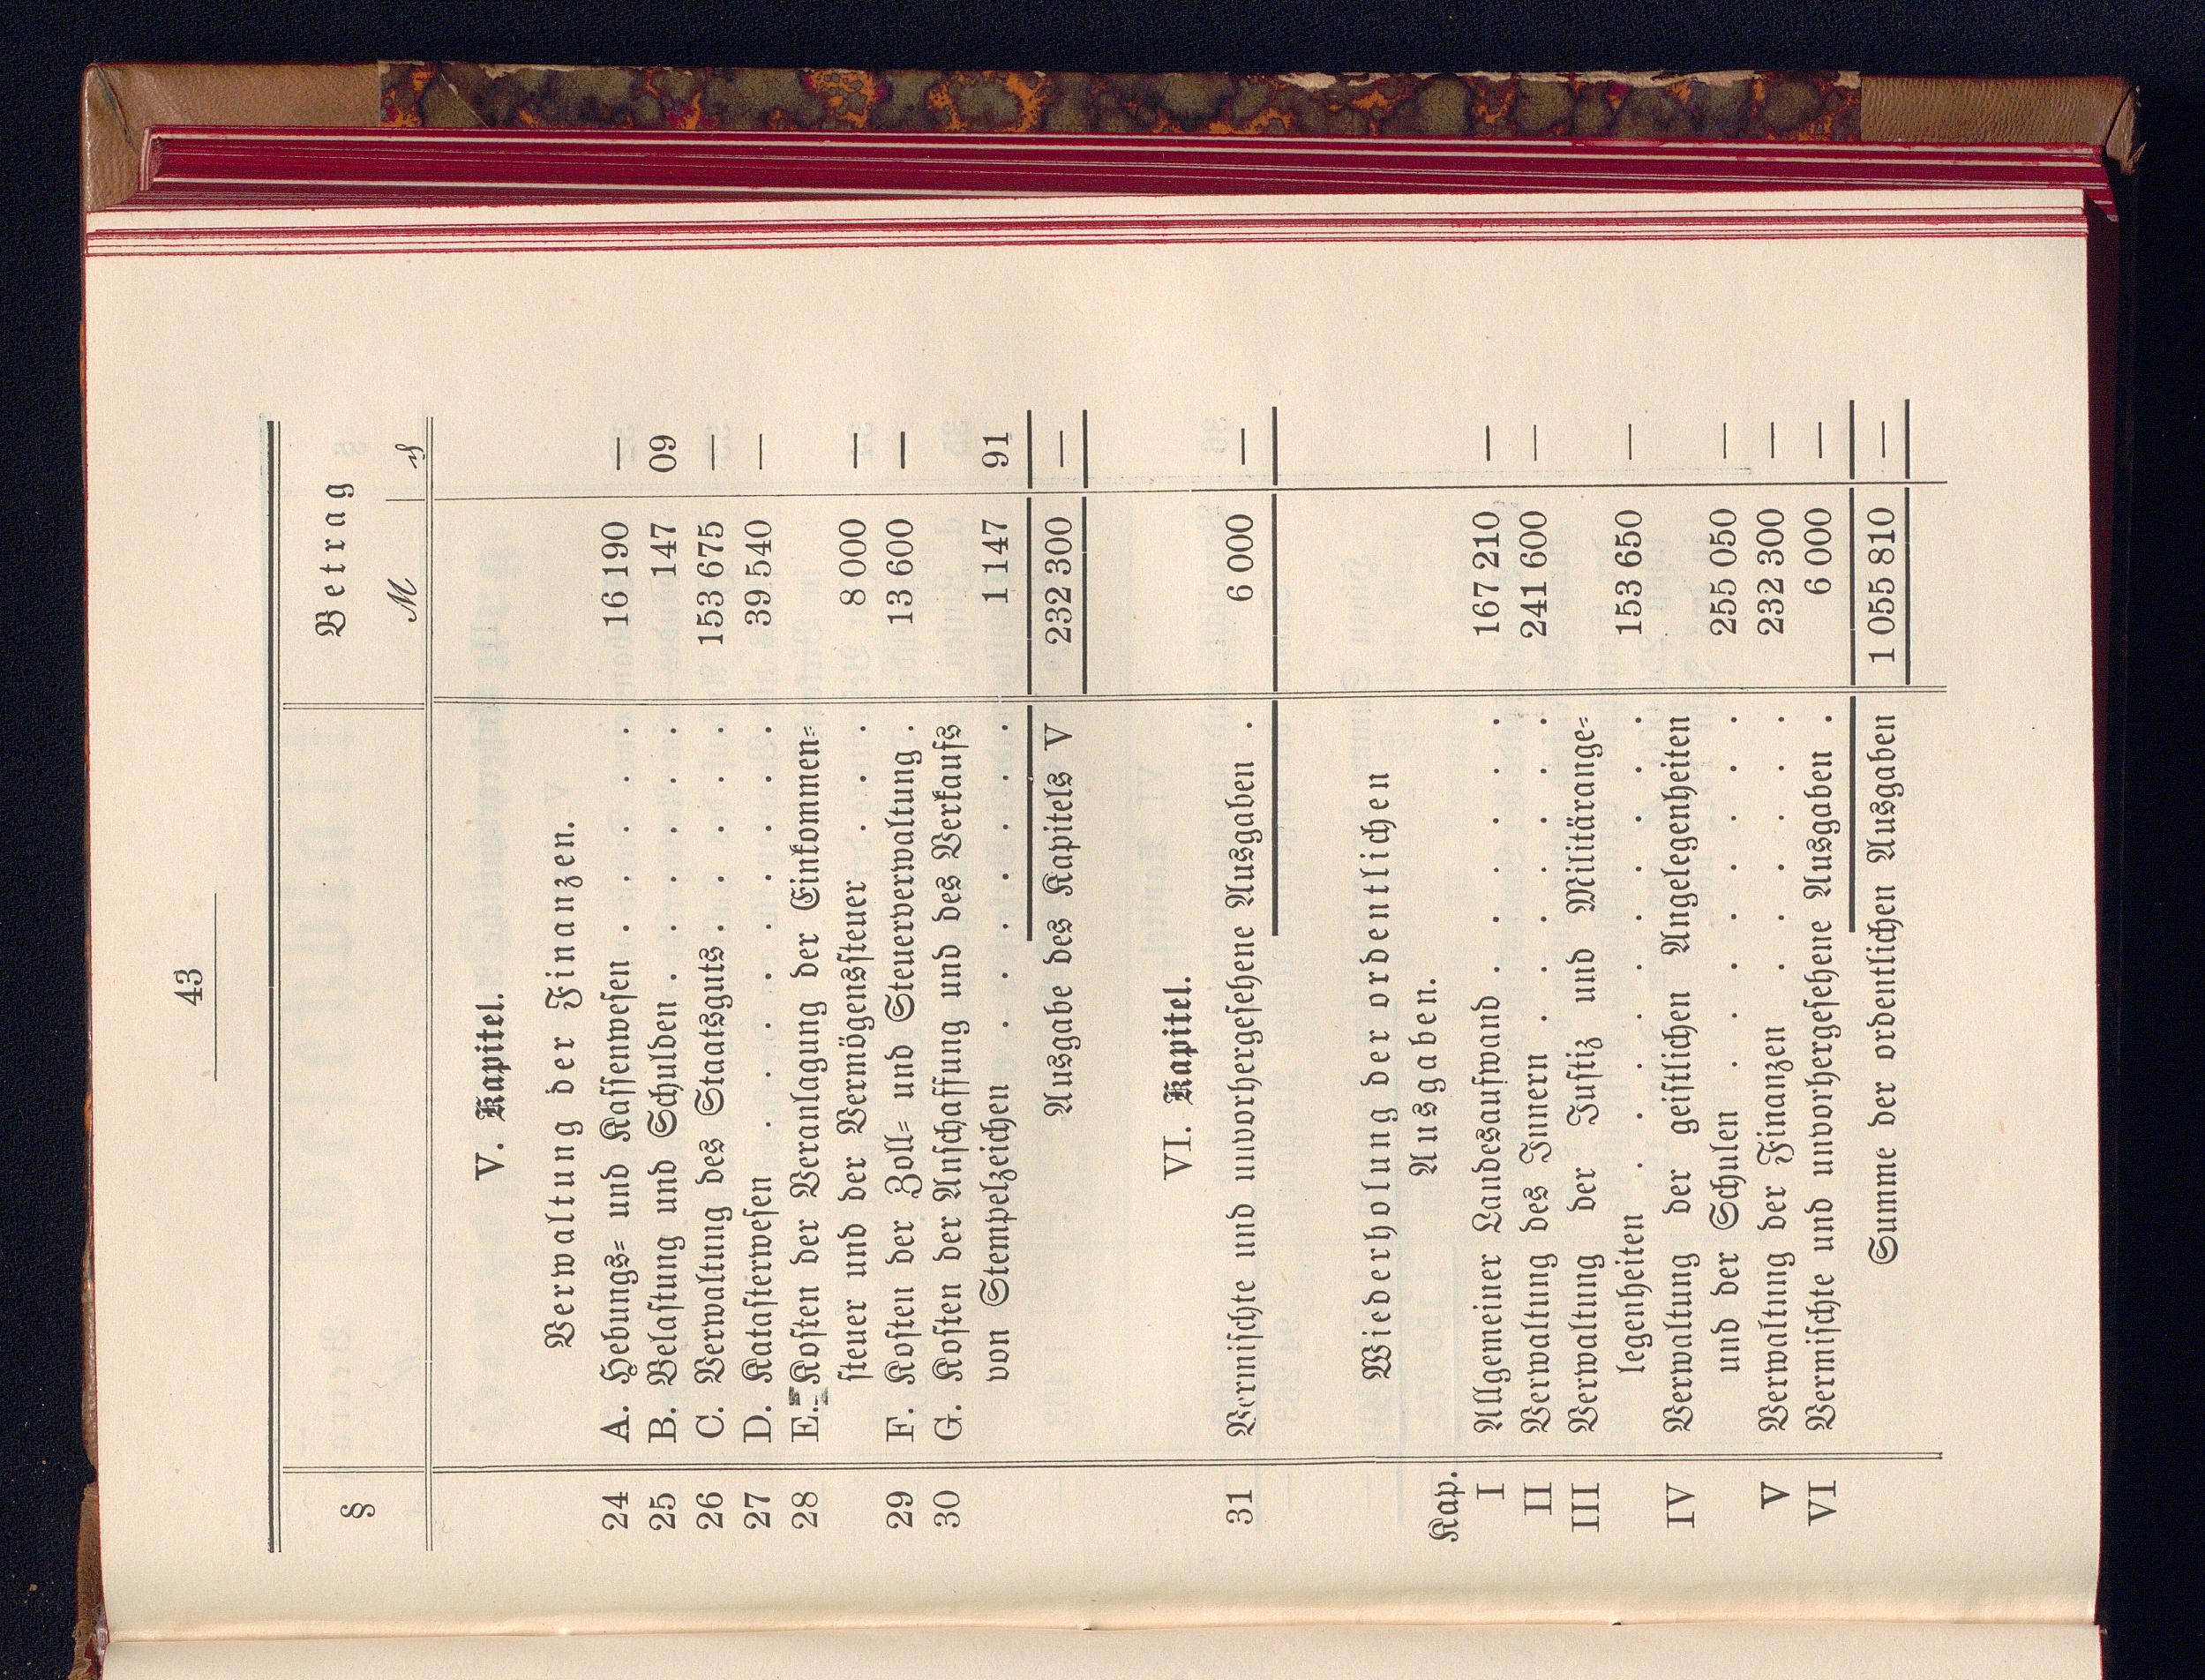 43
§ Betrag
ℳ ₰
V. Kapitel.
Verwaltung der Finanzen.
24 A. Hebungs= und Kassenwesen . . . . . 16 190 —
25 B. Belastung und Schulden . . . . . . 147 09
26 C. Verwaltung des Staatsguts . . . . . 153 675 —
27 D. Katasterwesen . . . . . . . . . 39 540 —
28 E. Kosten der Veranlagung der Einkommen=
steuer und der Vermögenssteuer . . . . 8 000 —
29 F. Kosten der Zoll= und Steuerverwaltung . 13 600 —
30 G. Kosten der Anschaffung und des Verkaufs
von Stempelzeichen . . . . . . . 1 147 91
Ausgabe des Kapitels V 232 300 —
VI. Kapitel.
31 Vermischte und unvorhergesehene Ausgaben . 6 000 —
Wiederholung der ordentlichen
Ausgaben.
Kap.
I Allgemeiner Landesaufwand . . . . . . 167 210 —
II Verwaltung des Innern . . . . . . . 241 600 —
III Verwaltung der Justiz und Militärange=
legenheiten . . . . . . . . . . 153 650 —
IV Verwaltung der geistlichen Angelegenheiten
und der Schulen . . . . . . . . 255 050 —
V Verwaltung der Finanzen . . . . . . 232 300 —
VI Vermischte und unvorhergesehene Ausgaben . 6 000 —
Summe der ordentlichen Ausgaben 1 055 810 —